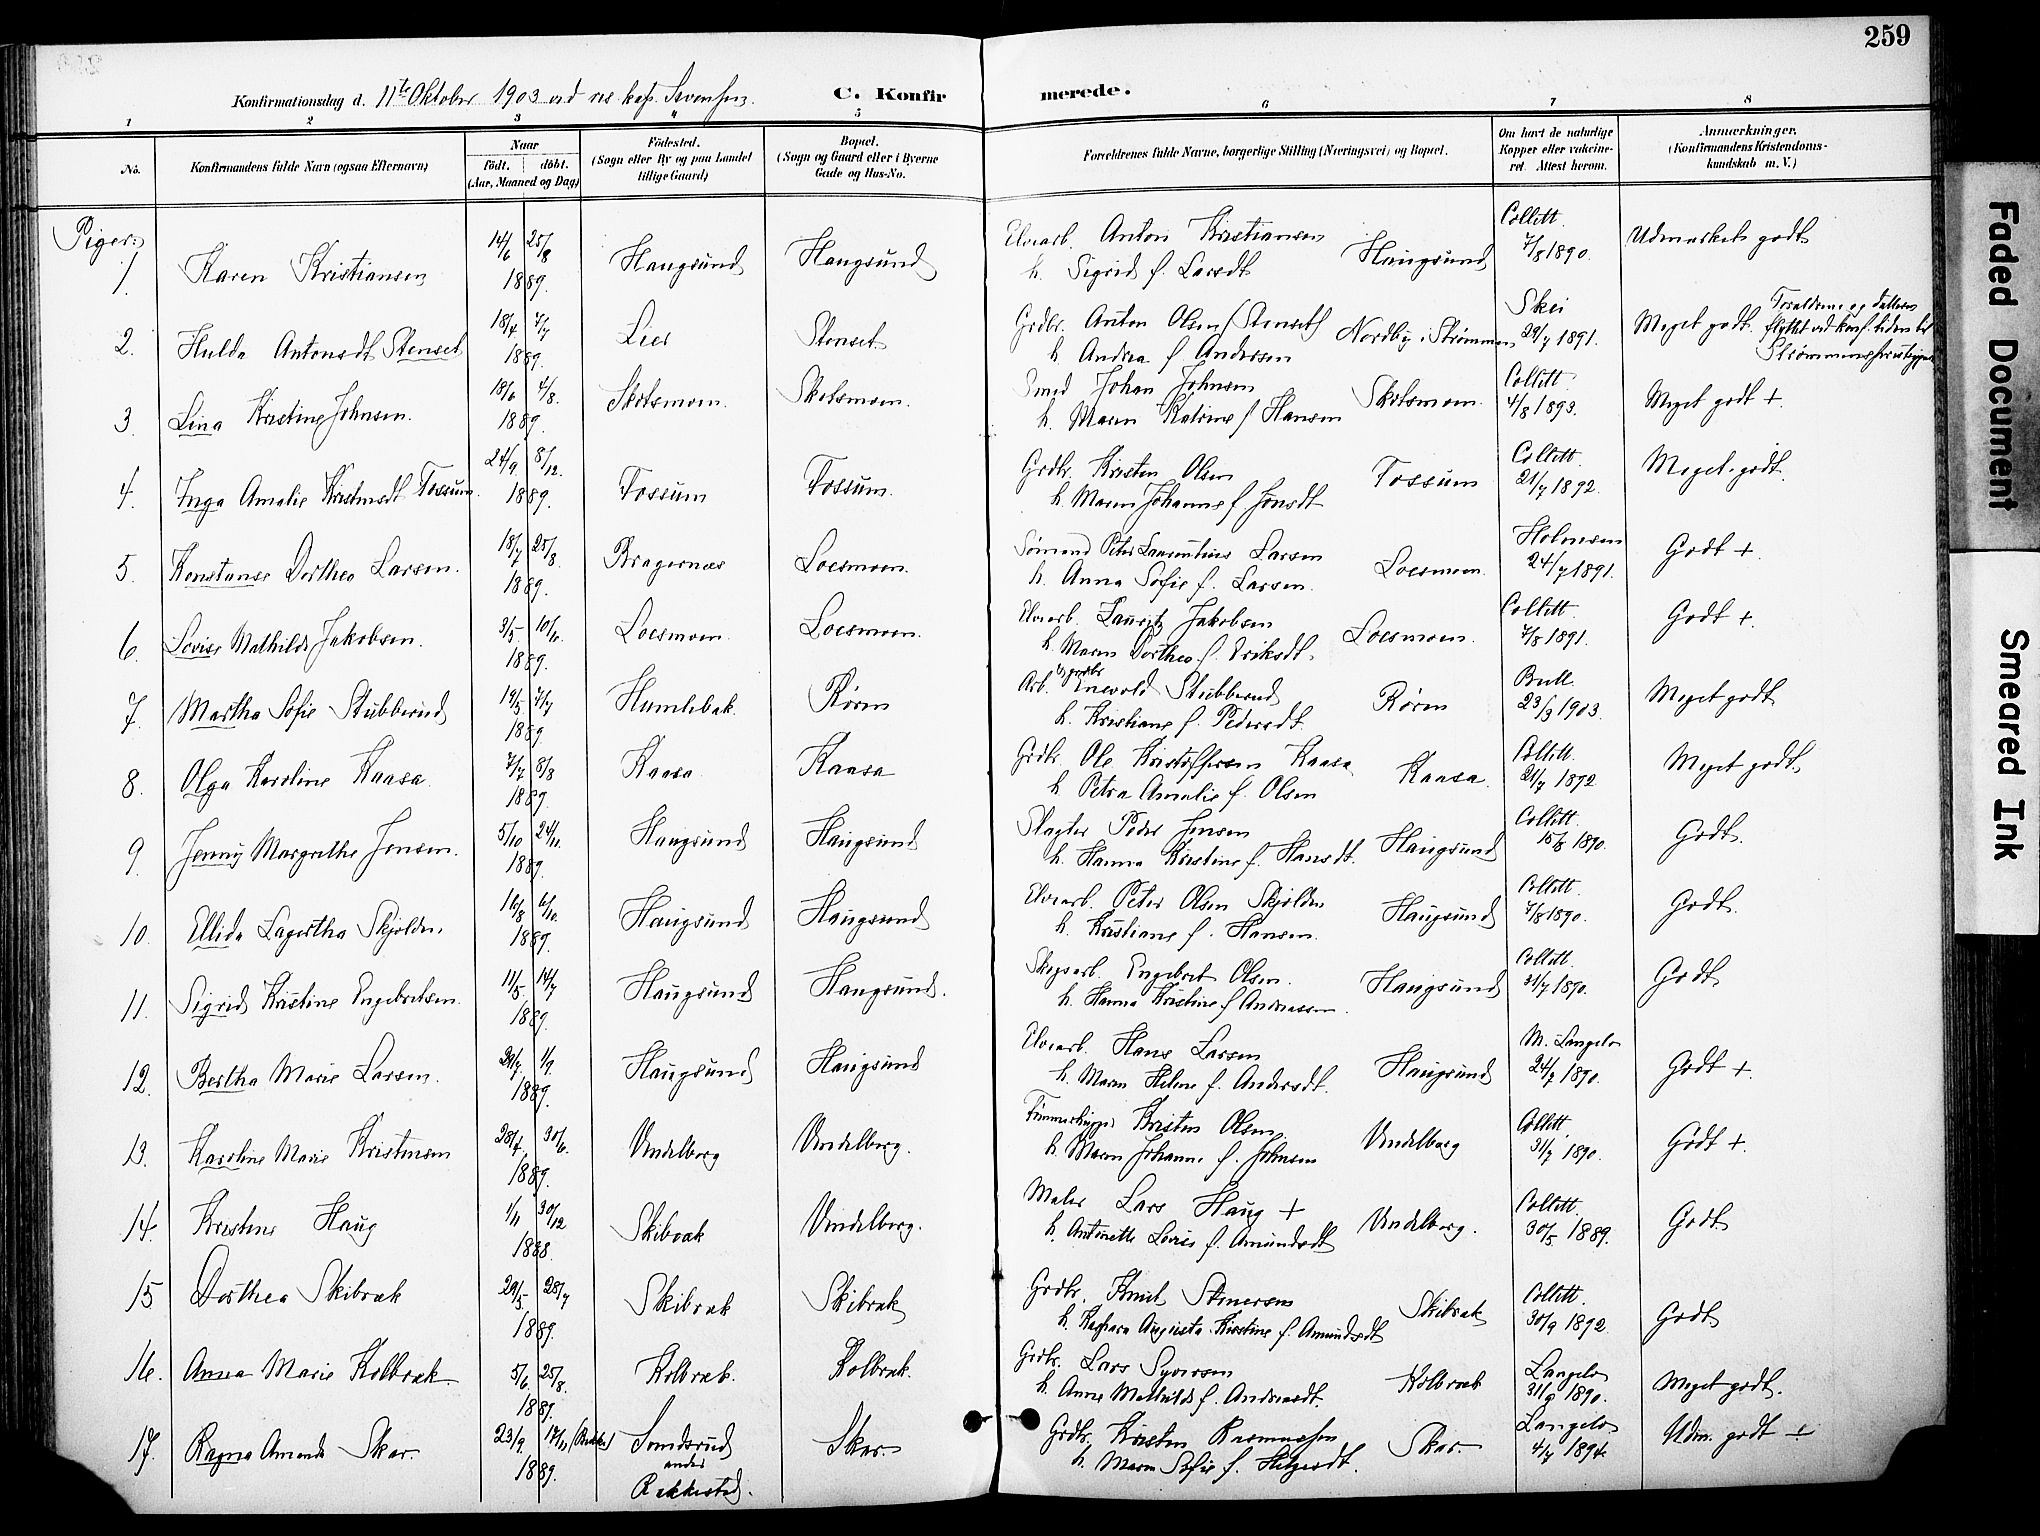 259
Konfirmationsdag d. 11te Oktober 1903 ved res. kap. Svensen.
C. Konfirmerede.
1 2 3 4 5 6 7 8
No.
Konfirmandens fulde Navn (ogsaa Efternavn)
Naar
født. døbt.
(Aar, Maaned og Dag)
Fødested.
(Sogn eller By og paa Landet
tillige Gaard)
Bopæl.
(Sogn og Gaard eller i Byerne
Gade og Hus-No.
Forældrenes fulde Navne, borgerlige Stilling (Næringsvei) og Bopæl.
Om havt de naturlige
Kopper eller vaccine-
ret. Attest herom.
Anmærkninger.
(Konfirmandens Kristendoms-
kundskab m. V.)
Piger:
1. Karen Kristiansen 14/6 25/8 1889. Haugsund Haugsund
Elvearb. Anton Kristiansen
h. Sigrid f. Larsdt. Haugsund Collett. 7/8 1890. Udmerket godt
2. Hulda Antonsdt. Stenset 18/4 7/7 1889. Lier Stenset
Grdbr. Anton Olsen (Stenset)
h. Andrea f. Andersen Nordby i Strømmen Skei 29/7 1891. Meget godt. Forældrene og datteren
flyttet ved konf. tiden til
3. Lina Kristine Johnsen. 18/6 4/8. 1889. Skotsmoen. Skotsmoen.
Smed Johan Johnsen
h. Maren Katrine f. Hansen Skotsmoen. Collett. 4/8 1893. Meget godt +.
4. Inga Amalie Kristensdt. Fossum. 24/9 8/12. 1889. Fossum Fossum.
Grdbr. Kristen Olsen
h. Maren Johanne f. Jonsdt. Fossum Collett. 21/7 1892. Meget godt.
5. Konstanse Dorthea Larsen. 18/7 25/8. 1889. Bragernes Loesmoen.
Sømand Peter Laurentius Larsen
h. Anna Sofie f. Larsen. Loesmoen. Holmsen 24/7 1891. Godt +.
6. Lovise Mathilde Jakobsen. 3/5. 10/6. 1889. Loesmoen. Loesmoen.
Elvearb. Lauritz Jakobsen
h. Maren Dorthea f. Eriksdt. Loesmoen. Collett. 7/8 1891. Godt +.
7. Martha Sofie Stubberud 19/5 7/7 1889. Humlebæk. Røren
Arb. Enevold Stubberud
h. Kristiane f. Pedersdt. Røren Bull. 23/3 1903. Meget godt
8. Olga Karoline Kaasa. 7/7 8/8 1889. Kaasa. Kaasa
Grdbr. Ole Kristoffersen Kaasa
h. Petra Amalie f. Olsen Kaasa. Collett. 21/7 1892 Meget godt.
9. Jenny Margrethe Jensen. 5/10 24/11. 1889. Haugsund Haugsund
Slagter Peder Jensen
h. Hanna Kirstine f. Hansdt. Haugsund Collett. 15/8 1890. Godt.
10. Ellida Lagertha Skjolden. 16/8 6/10. 1889. Haugsund Haugsund
Elvearb. Peter Olsen Skjolden
h. Kristiane f. Hansen. Haugsund Collett. 7/8 1890. Godt.
11. Sigrid Kristine Engebretsen. 11/5 14/7 1889. Haugsund Haugsund.
Skogsarb. Engebret Olsen.
h. Hanna Kristine f. Andreassen. Haugsund Collett. 31/7 1890. Godt
12. Bertha Marie Larsen. 29/7 1/9. 1889. Haugsund Haugsund
Elvearb. Hans Larsen
h. Maren Helene f. Andersdt. Haugsund M. Langelo 24/7 1890. Godt +.
13. Karoline Marie Kristensen 28/4 30/6. 1889. Vendelborg Vendelborg.
Tømmerhugger Kristen Olsen.
h. Maren Johanne f. Johnsen Vendelborg Collett. 31/7 1890. Godt +.
14. Kristine Haug 1/11 30/12 1888. Skibræk Vendelborg.
Maler Lars Haug +
h. Antonette Lovise f. Amundsdt. Vendelborg. Collett. 30/5 1889. Godt
15 Dorthea Skibræk 29/5. 28/7 1889. Skibræk Skibræk
Grdbr. Knut Stenersen
h. Augusta Kirstine f. Amundsdt Skibræk Collett. 30/9 1892. Godt
16. Anna Marie Kolbræk 5/6. 25/8. 1889. Kolbræk. Kolbræk.
Grdbr. Lars Syversen
h. Anne Mathilde f. Andersdt. Kolbræk Langelo 31/9 1890. Meget godt.
17. Ragna Amanda Skar. 23/9. 17/11 1889. under
Rakkestad. Skar.
Grdbr. Kristen Rasmussen
h. Maren Sofie f. Helgesdt. Skar. Langelo 4/7 1894. Udm. godt +
Faded Document
Smeared Ink